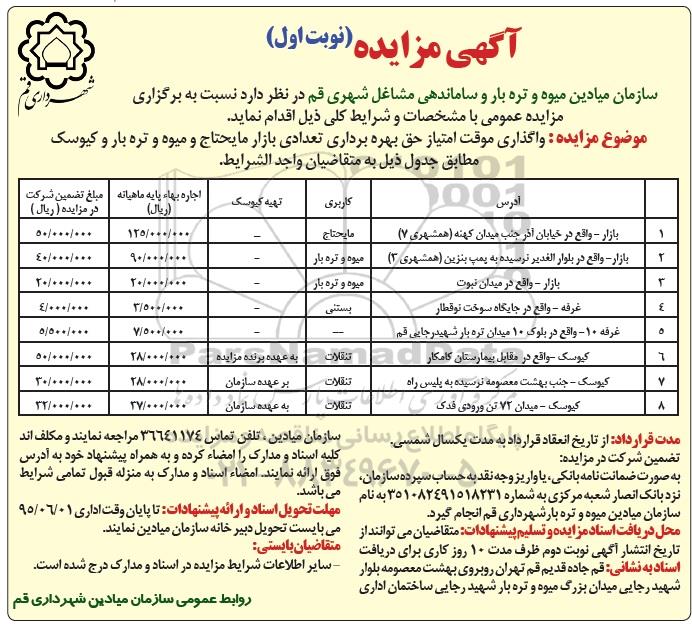 آگهی مزایده (نوبت اول)
شهرداری قم
سازمان میادین میوه و تره بار و ساماندهی مشاغل شهری قم در نظر دارد نسبت به برگزاری
مزایده عمومی با مشخصات و شرایط کلی ذیل اقدام نماید.
موضوع مزایده : واگذاری موقت امتیاز حق بهره برداری تعدادی بازار مایحتاج و میوه و تره بار و کیوسک
مطابق جدول ذیل به متقاضیان واجد الشرایط.
آدرس | کاربری | تهیه کیوسک | اجاره بهاء پایه ماهیانه (ریال) | مبلغ تضمین شرکت در مزایده ( ریال )
۱ | بازار - واقع در خیابان آذر جنب میدان کهنه (همشهری ۷) | مایحتاج | - | ۱۲۵/۰۰۰/۰۰۰ | ۵۰/۰۰۰/۰۰۰
۲ | بازار- واقع در بلوار الغدیر نرسیده به پمپ بنزین (همشهری ۳) | میوه و تره بار | - | ۹۰/۰۰۰/۰۰۰ | ۴۰/۰۰۰/۰۰۰
۳ | بازار - واقع در میدان نبوت | میوه و تره بار | - | ۲۰/۰۰۰/۰۰۰ | ۲۰/۰۰۰/۰۰۰
۴ | غرفه - واقع در جایگاه سوخت نوقطار | بستنی | - | ۳/۵۰۰/۰۰۰ | ۴/۰۰۰/۰۰۰
۵ | غرفه ۱۰- واقع در بلوک ۱۰ میدان تره بار شهیدرجایی قم | -- | - | ۷/۵۰۰/۰۰۰ | ۵/۵۰۰/۰۰۰
۶ | کیوسک -واقع در مقابل بیمارستان کامکار | تنقلات | به عهده برنده مزایده | ۲۸/۰۰۰/۰۰۰ | ۵۰/۰۰۰/۰۰۰
۷ | کیوسک - جنب بهشت معصومه نرسیده به پلیس راه | تنقلات | بر عهده سازمان | ۲۸/۰۰۰/۰۰۰ | ۳۰/۰۰۰/۰۰۰
۸ | کیوسک - میدان ۷۲ تن ورودی فدک | تنقلات | به عهده سازمان | ۳۷/۰۰۰/۰۰۰ | ۳۲/۰۰۰/۰۰۰
مدت قرارداد: از تاریخ انعقاد قرارداد به مدت یکسال شمسی.
تضمین شرکت در مزایده:
به صورت ضمانت نامه بانکی، یا واریز وجه نقد به حساب سپرده سازمان،
نزد بانک انصار شعبه مرکزی به شماره ۳۵۱۰۸۲۴۹۱۵۱۸۲۳۱ به نام
سازمان میادین میوه و تره بار شهرداری قم انجام گیرد.
محل دریافت اسناد مزایده و تسلیم پیشنهادات: متقاضیان می توانند از
تاریخ انتشار آگهی نوبت دوم ظرف مدت ۱۰ روز کاری برای دریافت
اسناد به نشانی: قم جاده قدیم قم تهران روبروی بهشت معصومه بلوار
شهید رجایی میدان بزرگ میوه و تره بار شهید رجایی ساختمان اداری
سازمان میادین ، تلفن تماس ۳۶۶۴۱۱۷۴ مراجعه نمایند و مکلف اند
کلیه اسناد و مدارک را امضاء کرده و به همراه پیشنهاد خود به آدرس
فوق ارائه نمایند. امضاء اسناد و مدارک به منزله قبول تمامی شرایط
می باشد.
مهلت تحویل اسناد و ارائه پیشنهادات: تا پایان وقت اداری ۹۵/۰۶/۰۱
می بایست تحویل دبیر خانه سازمان میادین نمایند.
متقاضیان بایستی:
- سایر اطلاعات شرایط مزایده در اسناد و مدارک درج شده است.
روابط عمومی سازمان میادین شهرداری قم